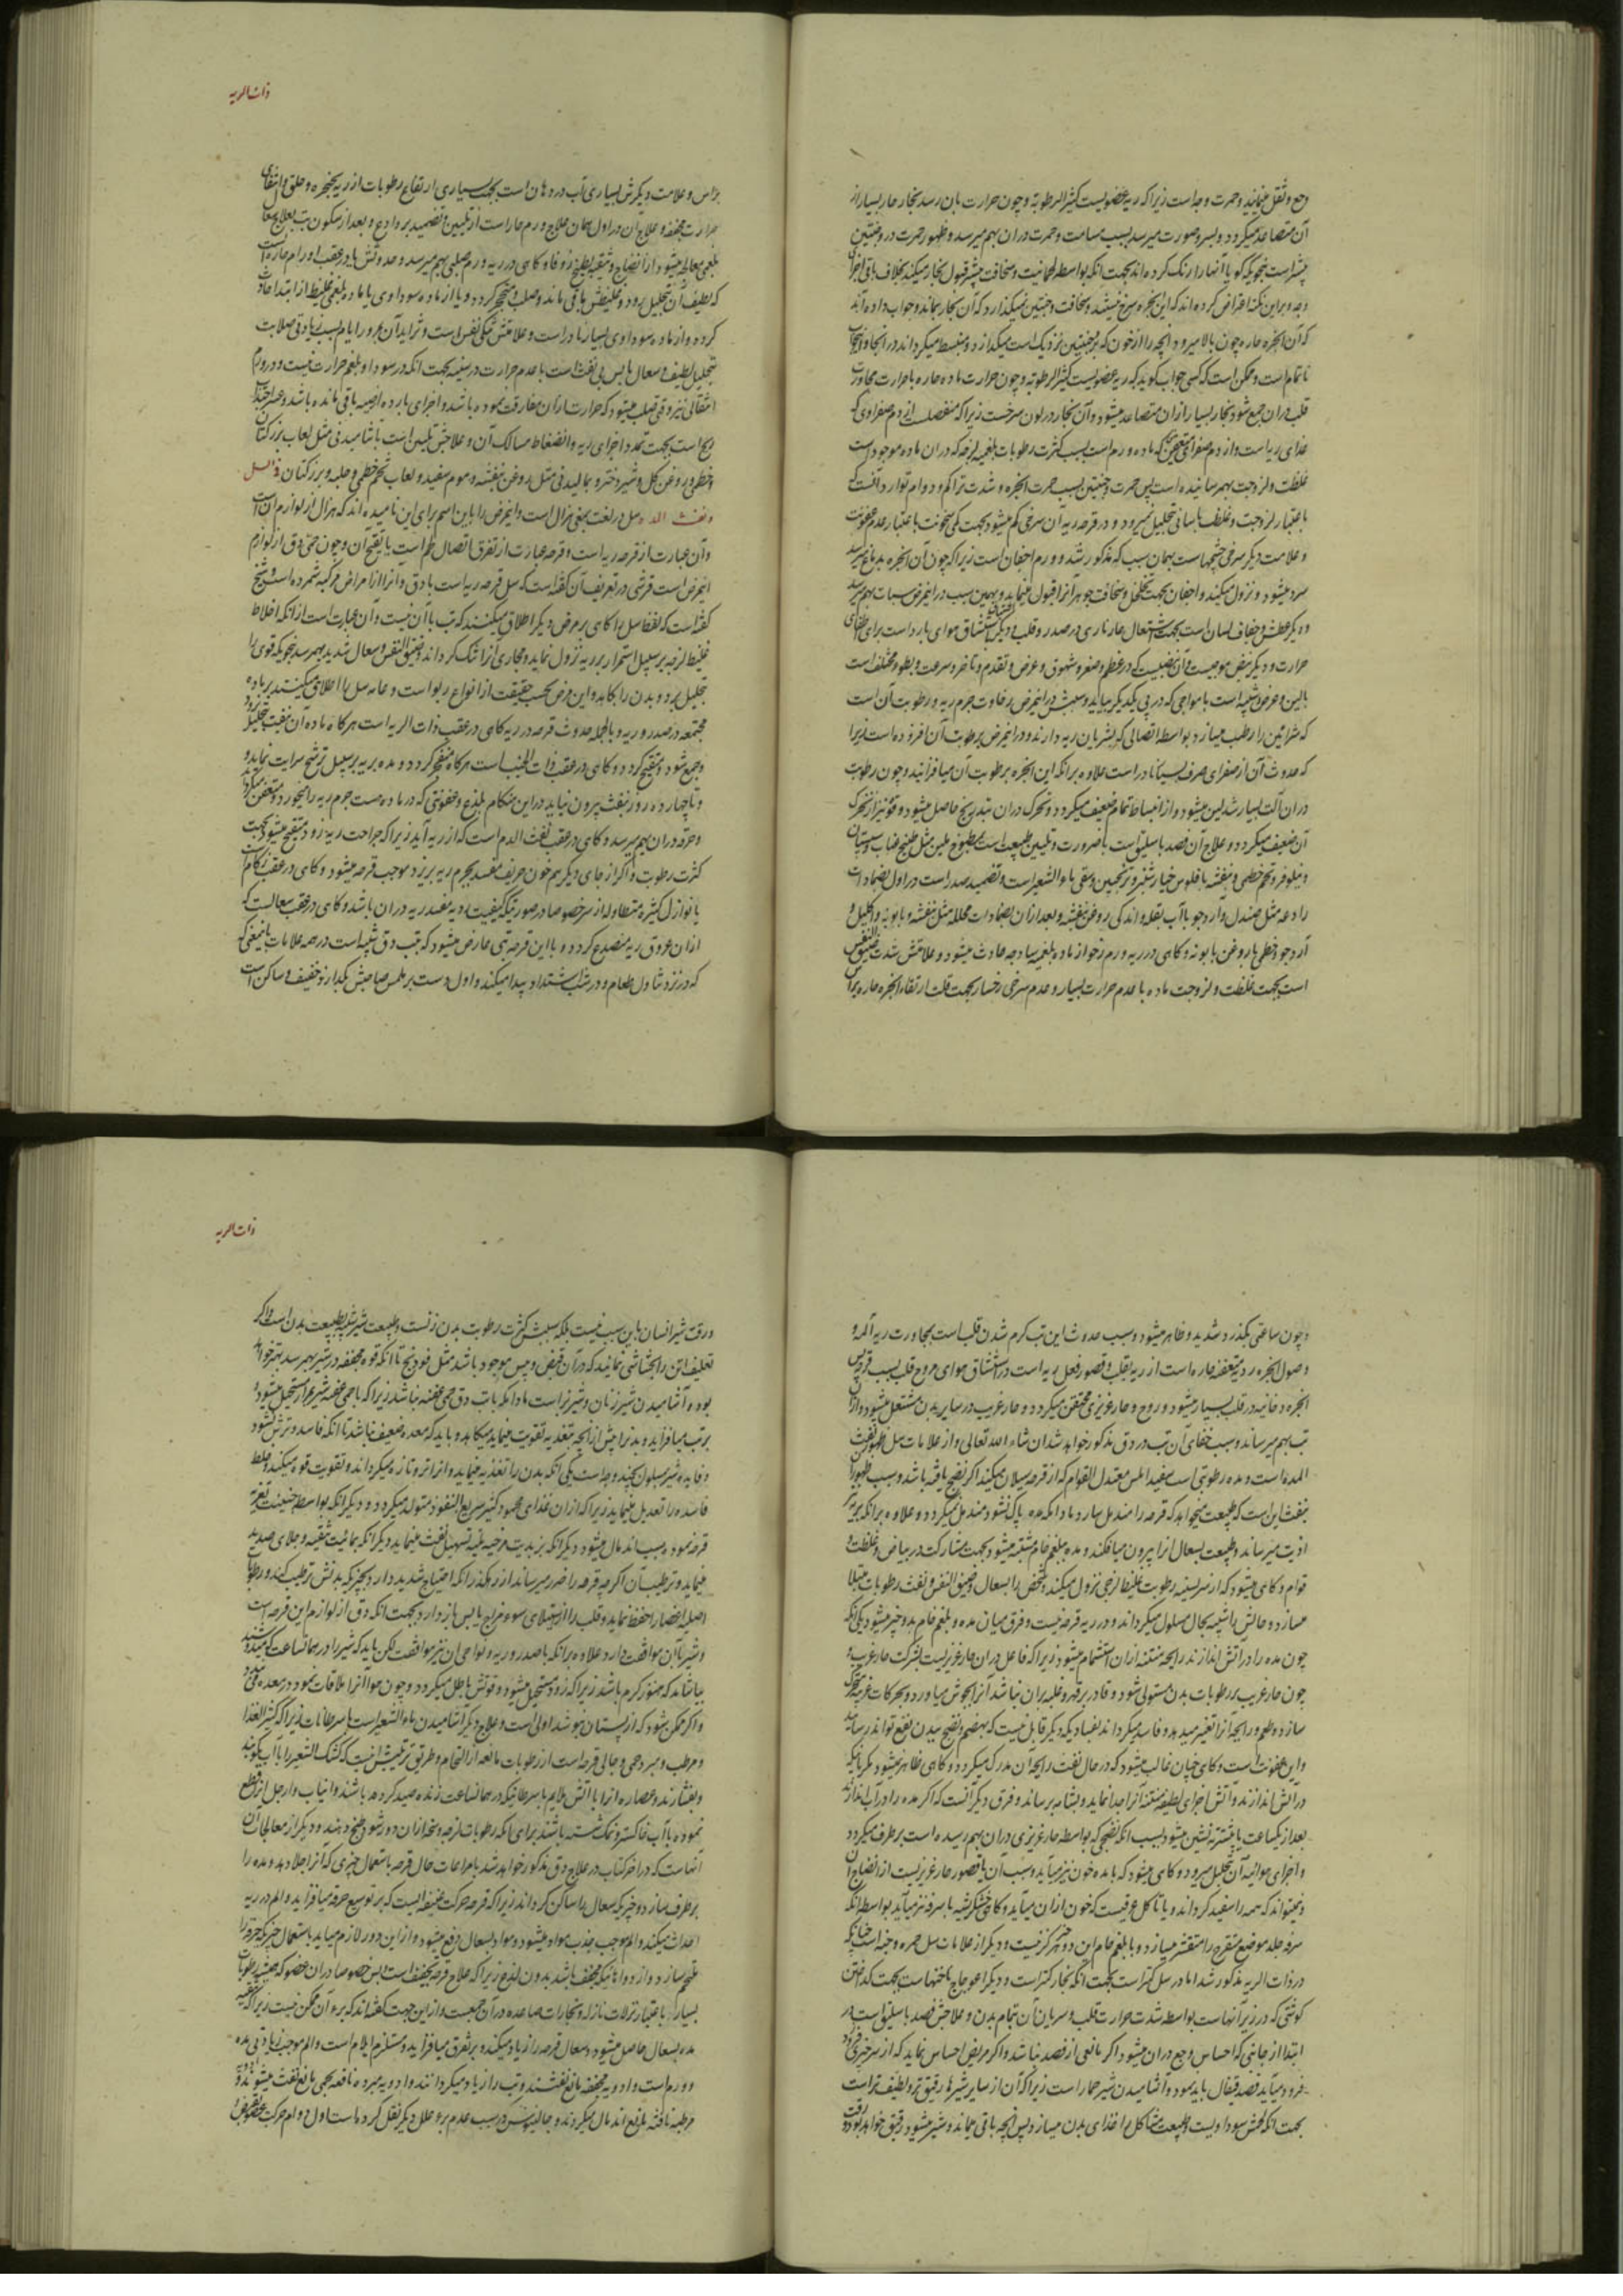 وجع و ثقل مینماید و حمرت وجه است زیرا که ریه عضویست کثیر الرطوبه و چون حرارت بان رسد بخار حار بسیار از
آن متصاعد میگردد و بسر و صورت میرسد بسبب مسامت و حمرت دران بهم میرسد و ظهور حمرت در وجنتین
بیشتر است بنحویکه گویا آنها را رنگ کرده اند بجهت آنکه بواسطه لحمانیت و سخافت بیشتر قبول بخار میکند بخلاف باقی اجزای
وجه و برین نکته اعتراض کرده اند که این ابخره سرخ نیستند و سخافت وجنتین نمیگذارد که آن بخار بماند و جواب داده اند
که آن ابخره حاره چون بالا میرود آنچه را از خون که بوجنتین نزدیک است میگدازد و منبسط میگرداند در انجا و اینجا
ناتمام است و ممکن است که کسی جواب گوید که ریه عضویست کثیر الرطوبه و چون حرارت ماده حاره با حرارت مجاورت
قلب دران جمع شود بخار بسیار ازان متصاعد میشود و آن بخار در لون سرخست زیرا که منفصل از دم صفراوی که
غذای ریه است و از دم صفراوی که ماده ورم است بسبب کثرت رطوبات بلغمیه لزجه که دران ماده موجود است
غلظت و لزوجت بهمرسانیده است پس حمرت وجنتین بسبب حمرت ابخره و شدت تراکم و دوام توارد آنست که
باعتبار لزوجت و غلظت باسانی تحلیل نمیرود و در قرحه ریه آن سرخی کم میشود بجهت کمی سخونت باعتبار عدم عفونت
و علامت دیگر سرخی چشمهاست بهمان سبب که مذکور شد و ورم اجفان است زیرا که چون آن ابخره بدماغ میرسد
سرد میشود و نزول میکند و اجفان بجهت تخلخل و سخافت جوهر آنرا قبول مینماید و بهمین سبب درین مرض سبات بهم میرسد
و دیگر عطش و جفاف لسان است بجهت اشتعال حار ناری در صدر و قلب و دیگر استنشاق هوای بارد است برای اطفای
حرارت و دیگر نبض موجیست و آن نبضیست که در عظم و صغر و شهوق و عرض و تقدم و تاخر و سرعت و بطو مختلف است
با لین و عرض و شبیه است بامواجی که در پی یکدیگر بیاید و سببش درین مرض رخاوت جرم ریه و رطوبت آن است
که شرائین را رطب میسازد بواسطه اتصالی که بشریان ریه دارند و درین مرض بر رطوبت آن افزوده است زیرا
که حدوث آن از صفرای صرف بسیار نادر است علاوه برانکه این ابخره بر رطوبت آن میافزایند و چون رطوبت
دران آلت بسیار شد لین میشود و از انبساط تمام ضعیف میگردد و تحرک دران بتدریج حاصل میشود و قوت نیز از تحرک
آن ضعیف میگردد و علاج آن فصد باسلیق است با ضرورت و تلیین طبیعت است بمطبوخ ملین مثل طبیخ عناب و سپستان
و نیلوفر و تخم خطمی و بنفشه با فلوس خیار شنبر و ترنجبین و سقی ماء الشعیر است و تضمید صدر است در اول بضمادات
رادعه مثل صندل و آرد جو با آب بقله و اندکی روغن بنفشه و بعد ازان بضمادات محلله مثل بنفشه و بابونه و اکلیل و
آرد جو و خطمی با روغن بابونه و گاهی در ریه ورم رخو از ماده بلغمیه ساذجه حادث میشود و علامتش شدت ضیق نفس
است بجهت غلظت و لزوجت ماده با عدم حرارت بسیار و عدم سرخی رخسار بجهت قلت ارتقاء ابخره حاره براس
ذات الریه
براس و علامت دیگرش بسیاری آب در دهان است بجهت بسیاری ارتفاع رطوبات از ریه بحنجره و حلق و انتفای
حرارت مجففه و علاج آن در اول همان علاج ورم حار است از تلیین و تضمید بروادع و بعد از سکون تب بعلاج سعال
بلغمی معالجه میشود از انضاج و تنقیه بطبیخ زوفا و گاهی در ریه ورم صلبی بهم میرسد و حدوثش یا در عقب اورام حاره است
که لطیف آن بتحلیل برود و غلیظش باقی ماند و صلب و متحجر گردد و یا از ماده سوداوی یا ماده بلغمی غلیظ از ابتدا حادث
گردد و از ماده سوداوی بسیار نادر است و علامتش تنگی نفس است و تزاید آن بمرور ایام بسبب زیادتی صلابت
بتحلیل لطیف و سعال یابس بی نفث است با عدم حرارت در سینه بجهت آنکه در سودا و بلغم حرارت نیست و در ورم
انتقالی نیز وقتی صلب میشود که حرارت ازان مفارقت نموده باشد و اجزای بارده ارضیه باقی مانده باشد
است بجهت تمدد اجزای ریه و انضغاط مسالک آن و علاجش تلیین است باشامیدنی مثل لعاب بزر کتان
و خطمی و روغن گل و شیر دختر و بمالیدنی مثل روغن بنفشه و موم سفید و لعاب تخم خطمی و حلبه و بزر کتان فی السل
و نفث المده سل در لغت بمعنی هزال است و این مرض را باین اسم برای این نامیده اند که هزال از لوازم آن است
و آن عبارت از قرحه ریه است و قرحه عبارت از تفرق اتصال لحم است با تقیح آن و چون حمی دق از لوازم
این مرض است قرشی در تعریف آن گفته است که سل قرحه ریه است با دق و آنرا از امراض مرکبه شمرده است و شیخ
گفته است که لفظ سل را گاهی بر مرض دیگر اطلاق میکنند که تب با آن نیست و آن عبارت است از انکه اخلاط
غلیظ لزجه بر سبیل استمرار بریه نزول نماید و مجاری آنرا تنگ گرداند و ضیق النفس و سعال شدید بهمرسد بنحویکه قوی را
بتحلیل برد و بدن را بکاهد و این مرض بحسب حقیقت از انواع ربو است و عامه سل را اطلاق میکنند بر ماده
مجتمعه در صدر و ریه و بالجمله حدوث قرحه در ریه گاهی در عقب ذات الریه است هرگاه ماده آن بنفث تحلیل نرود
و جمع شود و متقیح گردد و گاهی در عقب ذات الجنب است هرگاه منفجر گردد و مده بریه بر سبیل ترشح سرایت نماید
و تا چهارده روز بنفث بیرون نیاید درین هنگام بلذع و عفونتی که در ماده هست جرم ریه را میخورد و متعفن میگرداند
و قرحه دران بهم میرسد و گاهی در عقب نفث الدم است که از ریه آید زیرا که جراحت ریه زود متقیح میشود بجهت
کثرت رطوبت و اگر از جای دیگر هم خون حریف مفسد بجرم ریه بریزد موجب قرحه میشود و گاهی در عقب زکام است
یا نوازل کثیره متطاوله از سر خصوصا در صورتیکه کیفیت ردیه مفسد ریه دران باشد و گاهی در عقب سعالیست که
ازان عروق ریه منصدع گردد و با این قرحه تبی عارض میشود که بتب دق شبیه است در همه علامات باین معنی که
که در نزد تناول طعام و در شب اشتداد پیدا میکند و اول دست بر ملمس صاحبش بگذارند خفیف و ساکن است
و چون ساعتی بگذرد شدید و ظاهر میشود و سبب حدوث این تب گرم شدن قلب است بمجاورت ریه آلمه و
وصول ابخره ردیه متعفنه حاره است از ریه بقلب و قصور فعل ریه است در استنشاق هوای مروح قلب بسبب قرحه پس
ابخره دخانیه در قلب بسیار میشود و روح و حار غریزی محتقن میگردد و حار غریب در سایر بدن مشتعل میشود و ازان
تب بهم میرساند و سبب خفای آن تب در دق مذکور خواهد شد ان شاء الله تعالی و از علامات سل ظهور نفث
المده است و مده رطوبتی است سفید املس معتدل القوام که از قرحه سیلان میکند اگر نضج یافته باشد و سبب ظهور آن
بنفث این است که طبیعت میخواهد که قرحه را مندمل سازد و مادامکه مده پاک نشود مندمل نمیگردد و علاوه برانکه بریه
اذیت میرساند و طبیعت بسعال آنرا بیرون میافکند و مده ببلغم خام مشتبه میشود بجهت مشارکت در بیاض و غلظت و
قوام و گاهی میشود که از سر بسینه رطوبت غلیظ لزجی نزول میکند و شخص را بسعال و ضیق النفس و نفث رطوبات مبتلا
میسازد و حالش را شبیه بحال مسلول میگرداند و در ریه قرحه نیست و فرق میان مده و بلغم خام بدو چیز میشود یکی آنکه
چون مده را در آتش اندازند رایحه منتنه ازان استشمام میشود زیرا که فاعل دران حار غریزیست بشرکت حار غریب و
چون حار غریب بر رطوبات بدن مستولی شود و قادر بر قهر و غلبه بران نباشد آنرا بجوش میاورد و بحرکات غریبه متحرک
سازد و طعم و رایحه آنرا تغییر میدهد و فاسد میگرداند بفسادیکه دیگر قابل نیست که بهضم و نضج ببدن نفع تواند رسانید
و این عفونت است و گاهی چنان غالب میشود که در حال نفث رایحه آن مدرک میگردد و گاهی ظاهر نمیشود مگر بآنکه
در آتش اندازند و آتش اجزای لطیفه منتنه آنرا جدا نماید و بشامه برساند و فرق دیگر آنست که اگر مده را در آب اندازند
بعد از یکساعت یا بیشتر ته نشین میشود بسبب آنکه نضجی که بواسطه حار غریزی دران بهم رسیده است برطرف میگردد
و اجزای هوائیه آن بتحلیل میرود و گاهی میشود که با مده خون نیز میآید و سبب آن یا قصور حار غریزیست از انضاج آن
و نمیتواند که همه را سفید گرداند و یا تاکل عرقیست که خون ازان میآید و گاهی خشکریشه با سرفه نیز میآید بواسطه آنکه
سرفه جلد موضع متقرح را متقشر میسازد و با بلغم خام این دو چیز هرگز نیست و دیگر از علامات سل حمره وجنه است چنانکه
در ذات الریه مذکور شد اما در سل کمتر است بجهت آنکه بخار کمتر است و دیگر اعوجاج ناخنهاست بجهت گداختن
گوشتی که در زیر آنهاست بواسطه شدت حرارت قلب و سریان آن بتمام بدن و علاجش فصد باسلیق است در
ابتدا از جانبی که احساس وجع دران میشود اگر مانعی از فصد نباشد و اگر مریض احساس نماید که از سر چیزی
فرود میآید فصد قیفال باید نمود و آشامیدن شیر حمار است زیرا که آن از سایر شیرها رقیق تر و لطیف تر است
بجهت آنکه لحمش سوداویست و طبیعت مشاکل را غذای بدن میسازد و پس آنچه باقی میماند و شیر میشود رقیق خواهد بود
ذات الریه
و رقت شیر انسان باین سبب نیست بلکه سببش کثرت رطوبت بدن زنست و طبیعت شیر شبیه بطبیعت بدن است و اگر
تعلیف اتن را بحشایشی نمایند که در آن قبض و یبس موجود باشد مثل فودنج تا آنکه قوه مجففه در شیر بهمرسد بهتر خواهد
بود و آشامیدن شیر زنان و شیر بز است مادامکه با تب دق حمی عفنه نباشد زیرا که با حمی عفنه شیر بمرار مستحیل میشود و
بر تب میافزاید و بدن را بیش از آنچه بتغذیه تقویت مینماید میکاهد و باید که معده ضعیف نباشد تا آنکه فاسد و ترش نشود
و فایده شیر مسلول بچند وجه است یکی آنکه بدن را تغذیه مینماید و آنرا تر و تازه میگرداند و تقویت قوه میکند و خلط
فاسده را تعدیل مینماید زیرا که ازان غذای محمود کثیر سریع النفوذ متولد میگردد و دیگر آنکه بواسطه جبنیت تغریه
قرحه نموده سبب اندمال میشود و دیگر آنکه بزبدیت مرخیه ملینه تسهیل نفث مینماید و دیگر آنکه بمائیت تنقیه و جلای صدید
مینماید و ترطیب آن اگرچه قرحه را ضرر میرساند از رهگذر آنکه احتیاج شدید دارد بچیزیکه بدنش ترطیب کند و رطوبات
اصلیه اعضا را حفظ نماید و قلب را از استیلای سوء مزاج یابس باز دارد بجهت آنکه دق از لوازم این قرحه است
و شیر با آن موافقت دارد و علاوه برانکه با صدر و ریه و نواحی آن نیز موافقست لکن باید که شیر را در همان ساعت که میدوشند
بیاشامد که هنوز گرم باشد زیرا که زود مستحیل میشود و قوتش باطل میگردد و چون هوا آنرا ملاقات نمود در معده فاسد
و اگر ممکن شود که از پستان بنوشد اولی است و علاج دیگر آشامیدن ماء الشعیر است با سرطانات زیرا که کثیر الغذا
و مرطب و مبرد حمی و جالی قرحه است از رطوبات مانعه از التحام و طریق ترتیبش اینست که کشک الشعیر را با آب بکوبند
و بفشارند و عصاره آنرا با آتش ملایم با سرطانیکه در همان ساعت زنده صید کرده باشند و انیاب و ارجل آنرا قطع
نموده با آب خاکستر و نمک شسته باشند برای آنکه رطوبات لزجه و سخه ازان دور شود طبخ دهند و دیگر از معالجات آن
آنهاست که در آخر کتاب در علاج دق مذکور خواهد شد با مراعات حال قرحه باستعمال چیزی که آنرا جلا دهد و مده را
برطرف سازد و چیزیکه سعال را ساکن گرداند زیرا که قرحه حرکت عنیفه ایست که بر توسیع قرحه میافزاید و الم در ریه
احداث میکند و الم موجب جذب مواد میشود و مواد بسعال دفع میشود و ازین دور لازم میاید باستعمال چیزیکه قرحه را
ملتحم سازد و از دواهائیکه مجفف باشد بدون لذع زیرا که علاج قرحه تجفیف است پس خصوصا دران عضو که همیشه رطوبات
بسیار باعتبار نزلات نازله و بخارات صاعده در آن مجتمع است و ازین جهت گفته اند که برء آن ممکن نیست زیرا که تنقیه
مده بسعال حاصل میشود و سعال قرحه را زیاد میکند و بر تفرق میافزاید و مستلزم ایلام است و الم موجب زیادتی مده
و ورم است و ادویه مجففه مانع نفثند و تب را زیاد میگردانند و ادویه مبرده نافعه بحمی مانع نفث میشوند و
مرطبه نافثه مانع اندمال میگردند و جالینوس در سبب عدم برء علل دیگر نقل کرده است اول دوام حرکت عضو